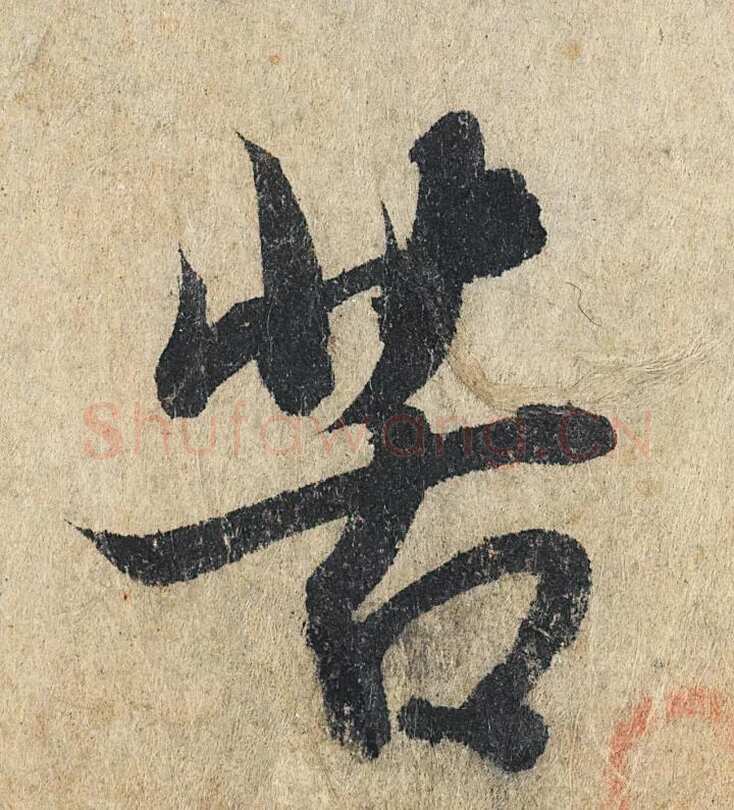 苦
Shufawang.CN